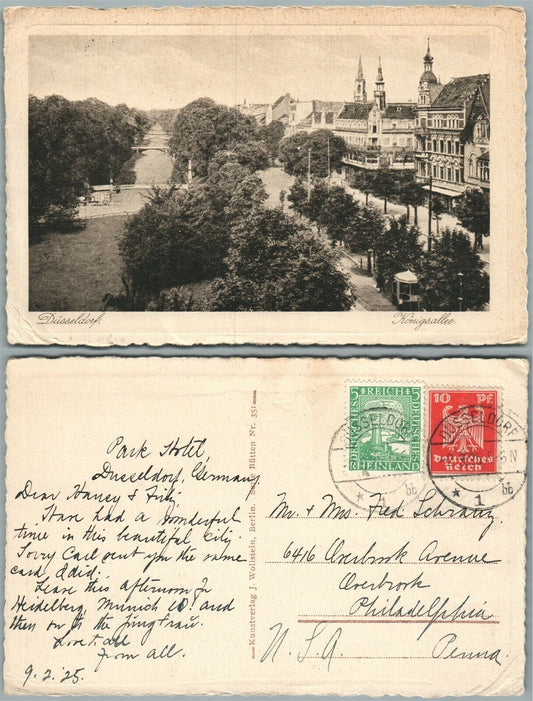 Düsseldorf.
Königsallee.
Park Hotel,
Dusseldorf, Germany
Dear Haney & Fritz
Have had a wonderful
time in this beautiful city.
Sorry Carl sent you the same
card I did.
Leave this afternoon for
Heidelberg, Munich and
then on to the Jungfrau.
Love to all
from all.
9.2.25.
Kunstverlag J. Wolstein, Berlin. Bütten Nr. 351
5 REICH 5
DEUTSCHES
RHEINLAND
10 Pf.
Deutsches
Reich
DÜSSELDORF
* 1 bb
DÜSSELDORF
* 1 bb
Mr. & Mrs. Fred Schwarz
6416 Overbrook Avenue
Overbrook
Philadelphia
U.S.A. Penna.